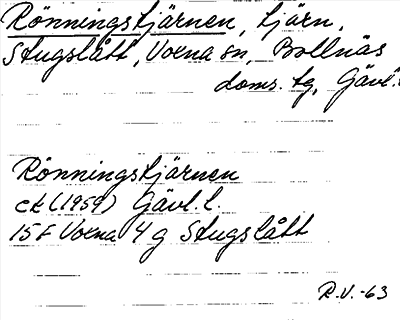 Rönningstjärnen, tjärn,
Stugslått, Voxna sn, Bollnäs
doms. tg, Gävl. l.
Rönningstjärnen
ek (1959) Gävl. l.
15 F Voxna 4 g Stugslått
R.V. -63